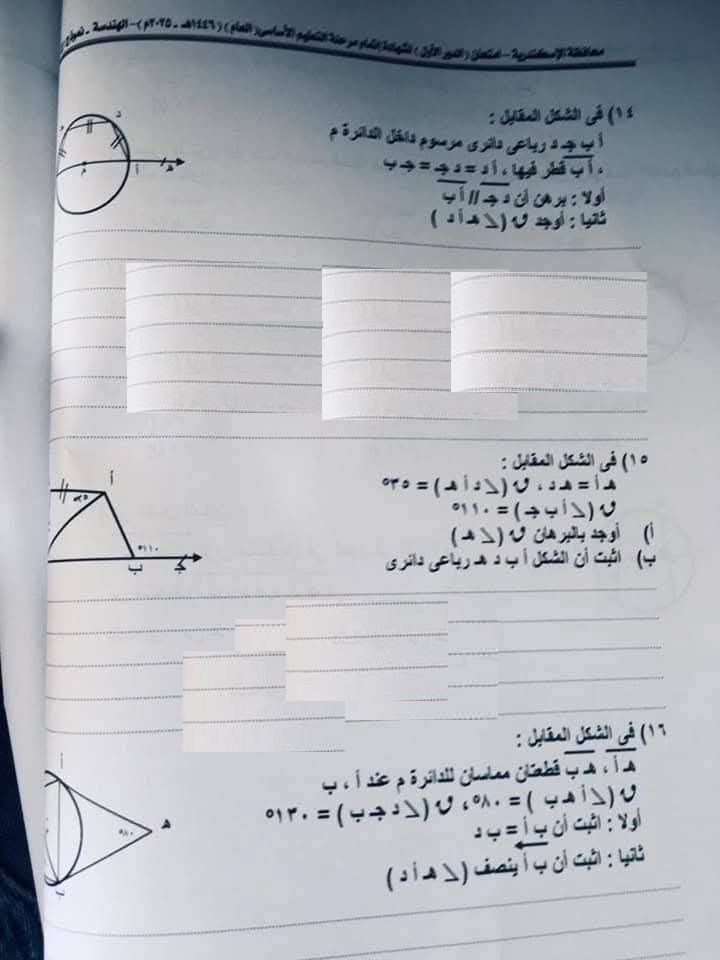 محافظة الإسكندرية - امتحان ( الدور الأول ) لشهادة إتمام مرحلة التعليم الأساسى ( العام ) ( ١٤٤٦هـ - ٢٠٢٥م ) - الهندسة - نموذج
١٤) فى الشكل المقابل :
أ ب جـ د رباعى دائرى مرسوم داخل الدائرة م
، أ ب قطر فيها ، أ د = د جـ = جـ ب
أولا : برهن أن د جـ // أ ب
ثانيا : أوجد ق ( ∠ هـ أ د )
د
م
أ
هـ
١٥) فى الشكل المقابل :
هـ أ = هـ د ، ق ( ∠ د أ هـ ) = ٣٥°
ق ( ∠ أ ب جـ ) = ١١٠°
أ) أوجد بالبرهان ق ( ∠ هـ )
ب) اثبت أن الشكل أ ب د هـ رباعى دائرى
أ
٣٥°
١١٠°
ب
جـ
١٦) فى الشكل المقابل :
هـ أ ، هـ ب قطعتان مماستان للدائرة م عند أ ، ب
ق ( ∠ أ هـ ب ) = ٨٠° ، ق ( ∠ د جـ ب ) = ١٣٠°
أولا : اثبت أن ب أ = ب د
ثانيا : اثبت أن ب أ ينصف ( ∠ هـ أ د )
أ
٨٠°
هـ
ب